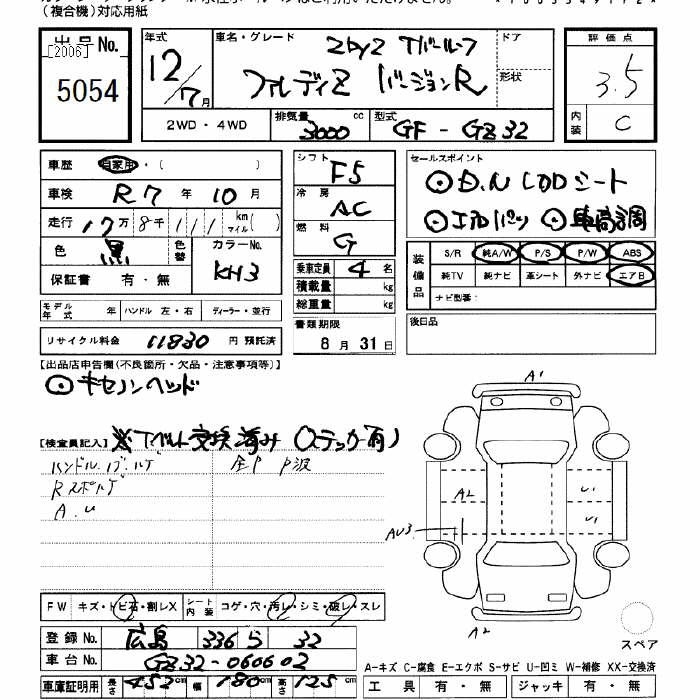 (複合機)対応用紙
出品No.
[2006]
5054
年式
12/7月
車名・グレード
2by2 Tバールーフ
フェアレディZ バージョンR
ドア
形状
評価点
3.5
内装
C
2WD・4WD
排気量
3000
cc
型式
GF-GZ32
車歴
自家用・( )
車検
R7年10月
走行
17万8千111
km
マイル
( )
色
黒
色替
カラーNo.
KH3
保証書 有・無
モデル年式 年 ハンドル 左・右 ディーラー・並行
リサイクル料金 11830 円 預託済
シフト
F5
冷房
AC
燃料
G
乗車定員 4 名
積載量 kg
総重量 kg
書類期限
8月31日
セールスポイント
シート
エアロ 車高調
装備品
S/R 純A/W P/S P/W ABS
純TV 純ナビ 革シート 外ナビ エアB
ナビ型番:
後日品
【出品店申告欄(不良箇所・欠品・注意事項等)】
キセノンヘッド
【検査員記入】
※Tベルト交換済み(ステッカー有)
A.U
A1
A2
U1
U1
AU3
A2
FW キズ・トビ石・割レX シート内装 コゲ・穴・汚レ・シミ・破レ・スレ
2 2
登録No. 広島 336 ら 32
車台No. GZ32-060602
車庫証明用 長さ 452 cm 幅 180 cm 高さ 125 cm
スペア
A-キズ C-腐食 E-エクボ S-サビ U-凹ミ W-補修 XX-交換済
工具 有・無 ジャッキ 有・無